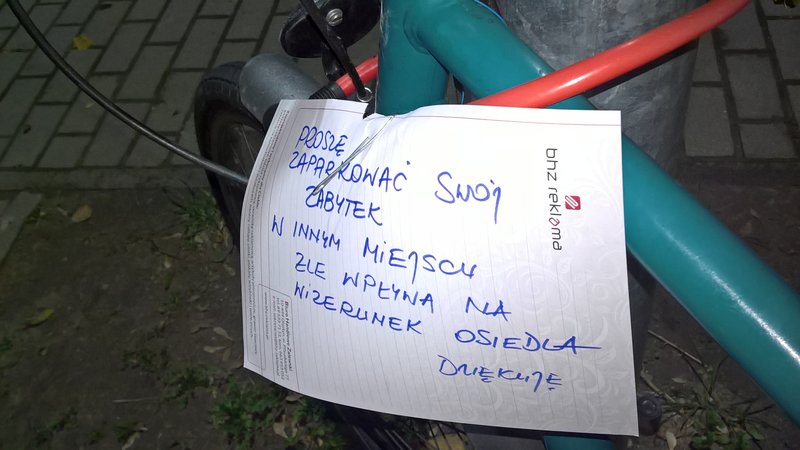 PROSZĘ
ZAPARKOWAĆ SWÓJ
ZABYTEK
W INNYM MIEJSCU
ŹLE WPŁYWA NA
WIZERUNEK OSIEDLA
DZIĘKUJĘ
bhz reklama